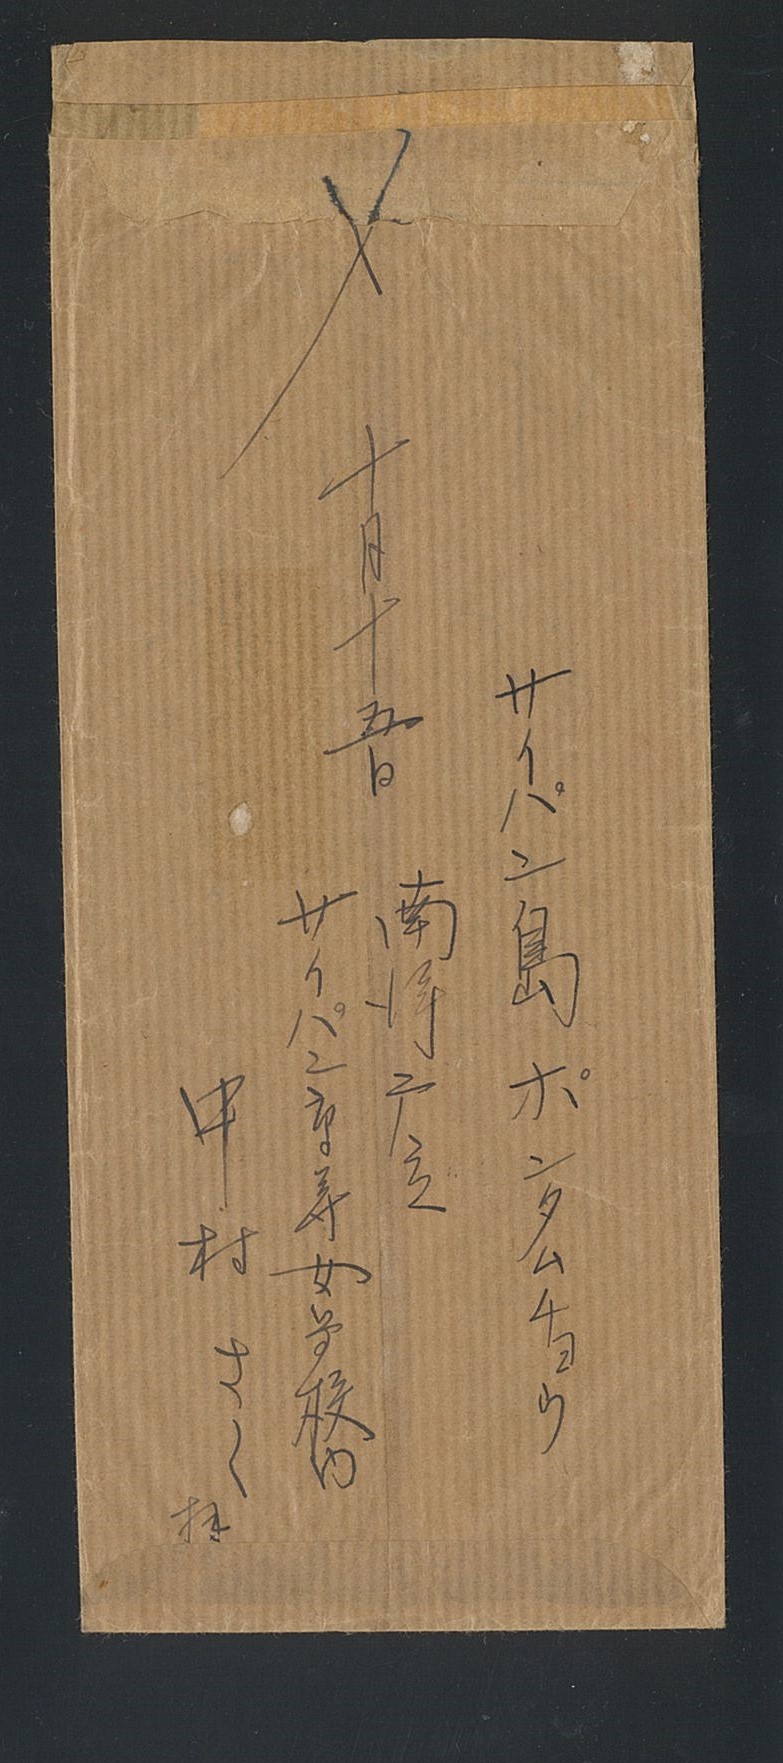 〆
サイパン島ポンタムチョウ
十月十五日
南洋庁立
サイパン高等女学校内
中村さく
拝